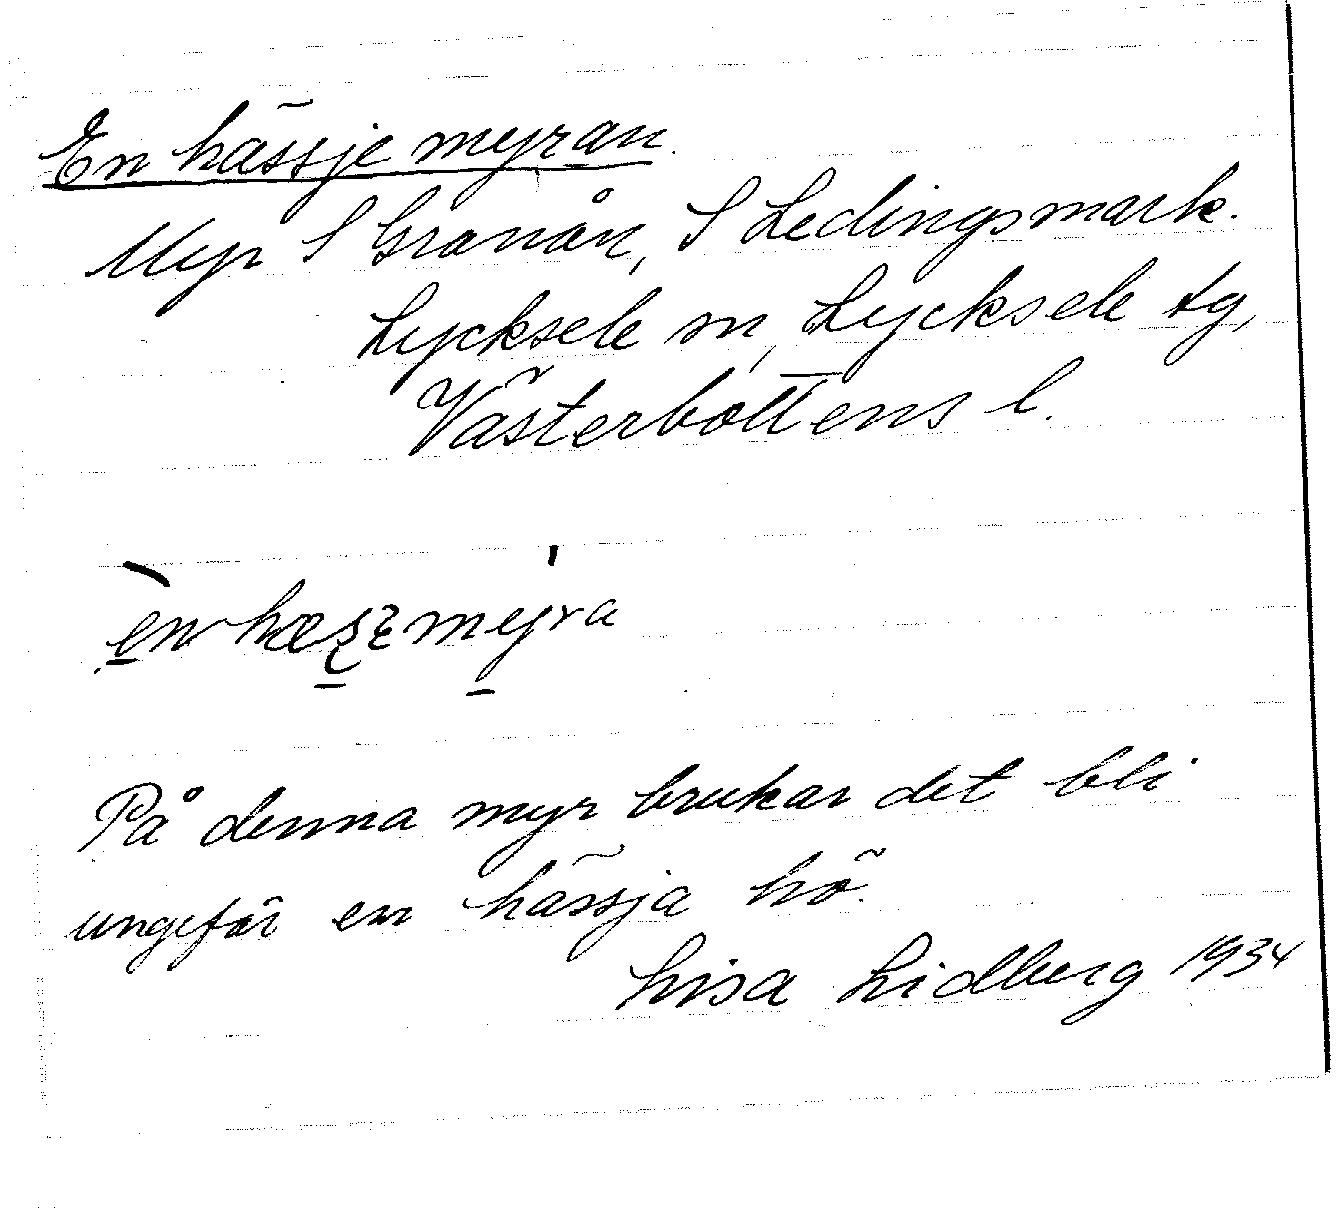 En hässje myran.
Myr S Granån, S Ledingsmark.
Lycksele sn, Lycksele tg,
Västerbottens l.
På denna myr brukar det bli
ungefär en hässja hö.
Lisa Lidberg 1934